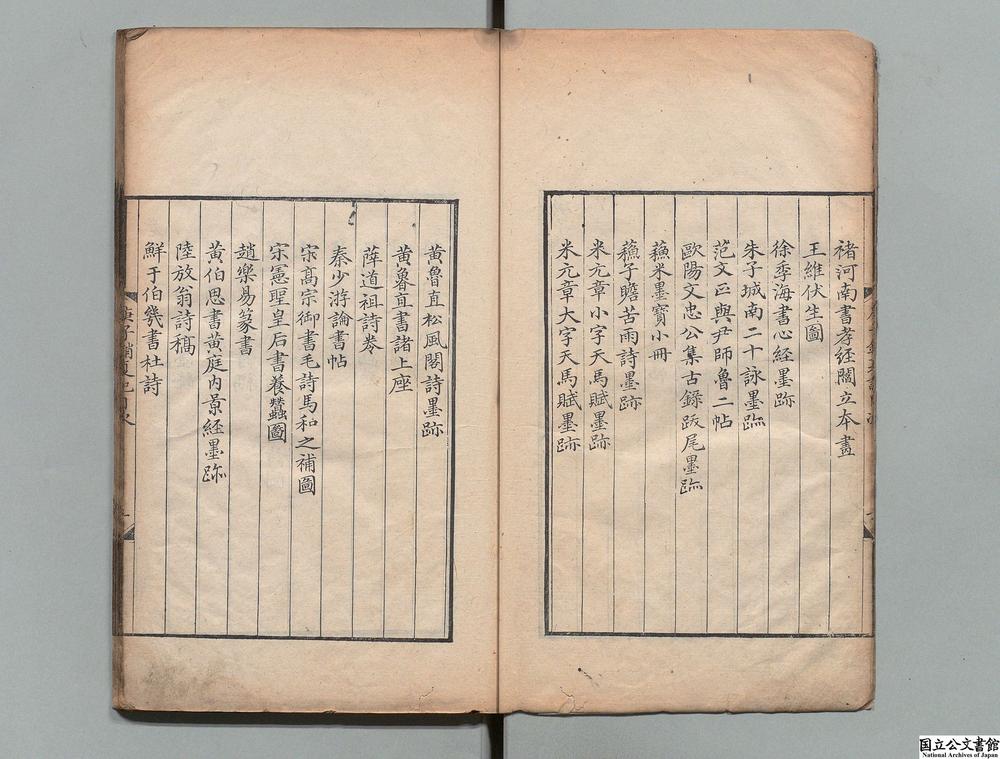 褚河南書孝經閻立本畫
王維伏生圖
徐季海書心經墨跡
朱子城南二十詠墨跡
范文正與尹師魯二帖
歐陽文忠公集古錄跋尾墨跡
蘓米墨寶小冊
蘓子瞻苦雨詩墨跡
米元章小字天馬賦墨跡
米元章大字天馬賦墨跡
黃魯直松風閣詩墨跡
黃魯直書諸上座
薛道祖詩卷
秦少游論書帖
宋高宗御書毛詩馬和之補圖
宋憲聖皇后書養蠶圖
趙樂易篆書
黃伯思書黃庭內景經墨跡
陸放翁詩稿
鮮于伯幾書杜詩
国立公文書館
National Archives of Japan